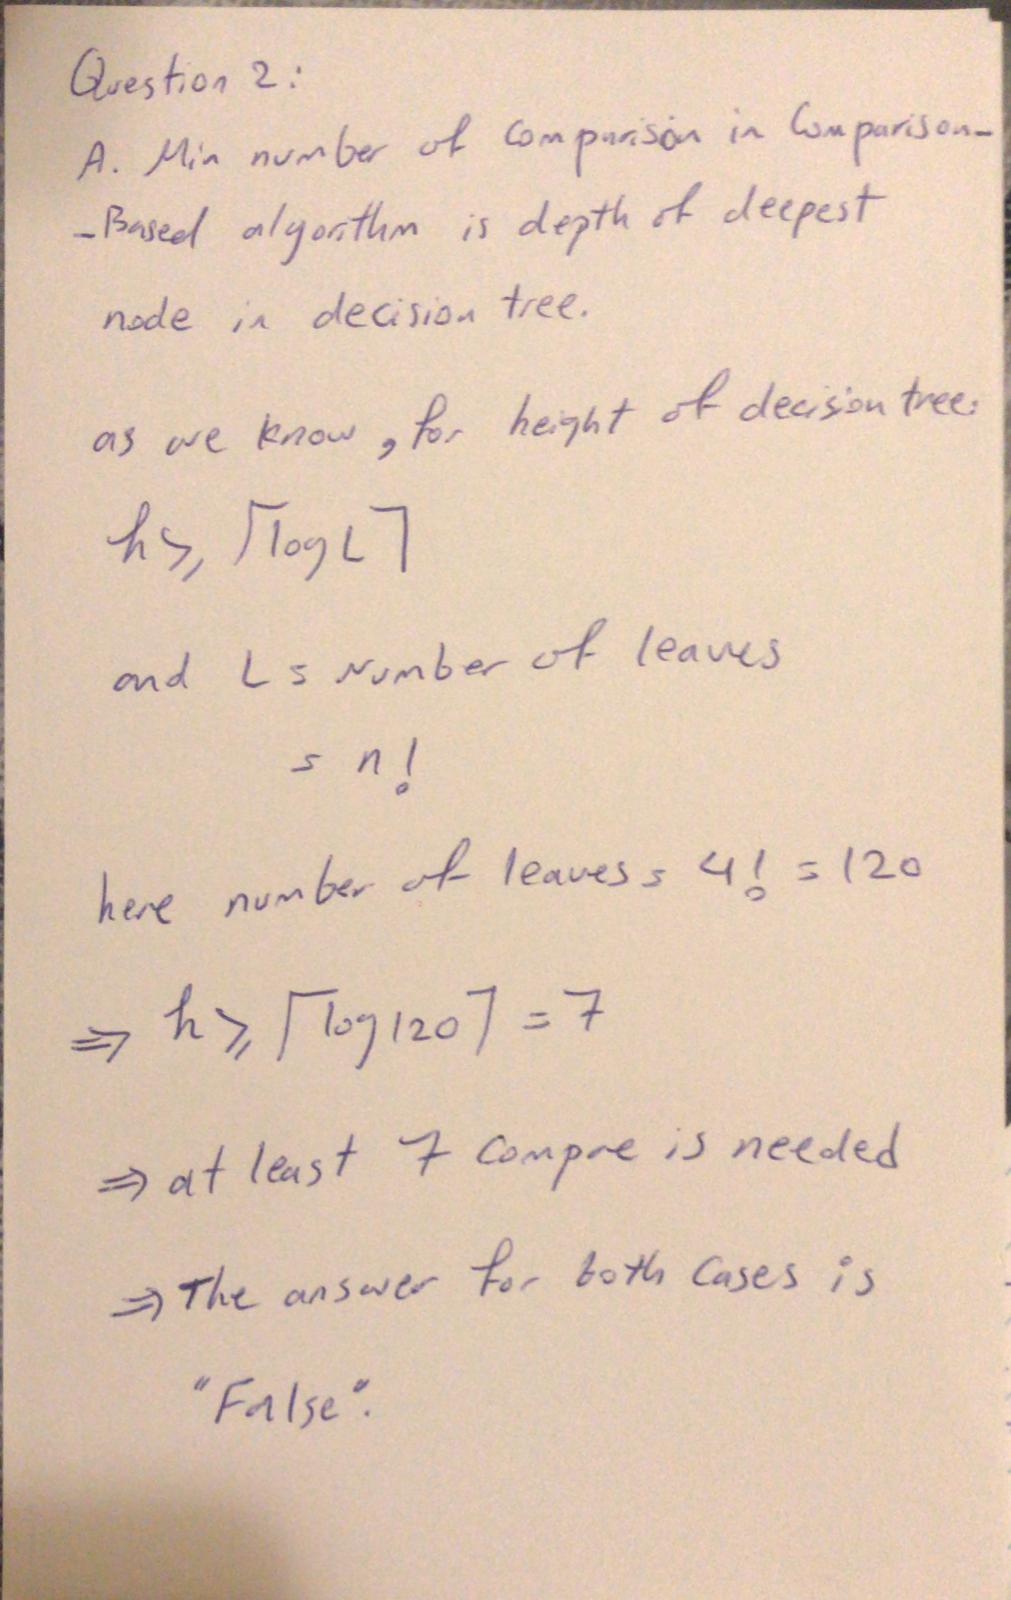 Question 2:
A. Min number of comparison in Comparison-
-Based algorithm is depth of deepest
node in decision tree.
as we know, for height of decision tree:
h ≥ ⌈log L⌉
and L = number of leaves
= n!
here number of leaves = 4! = 120
⇒ h ≥ ⌈log 120⌉ = 7
⇒ at least 7 compre is needed
⇒ The answer for both cases is
"False".